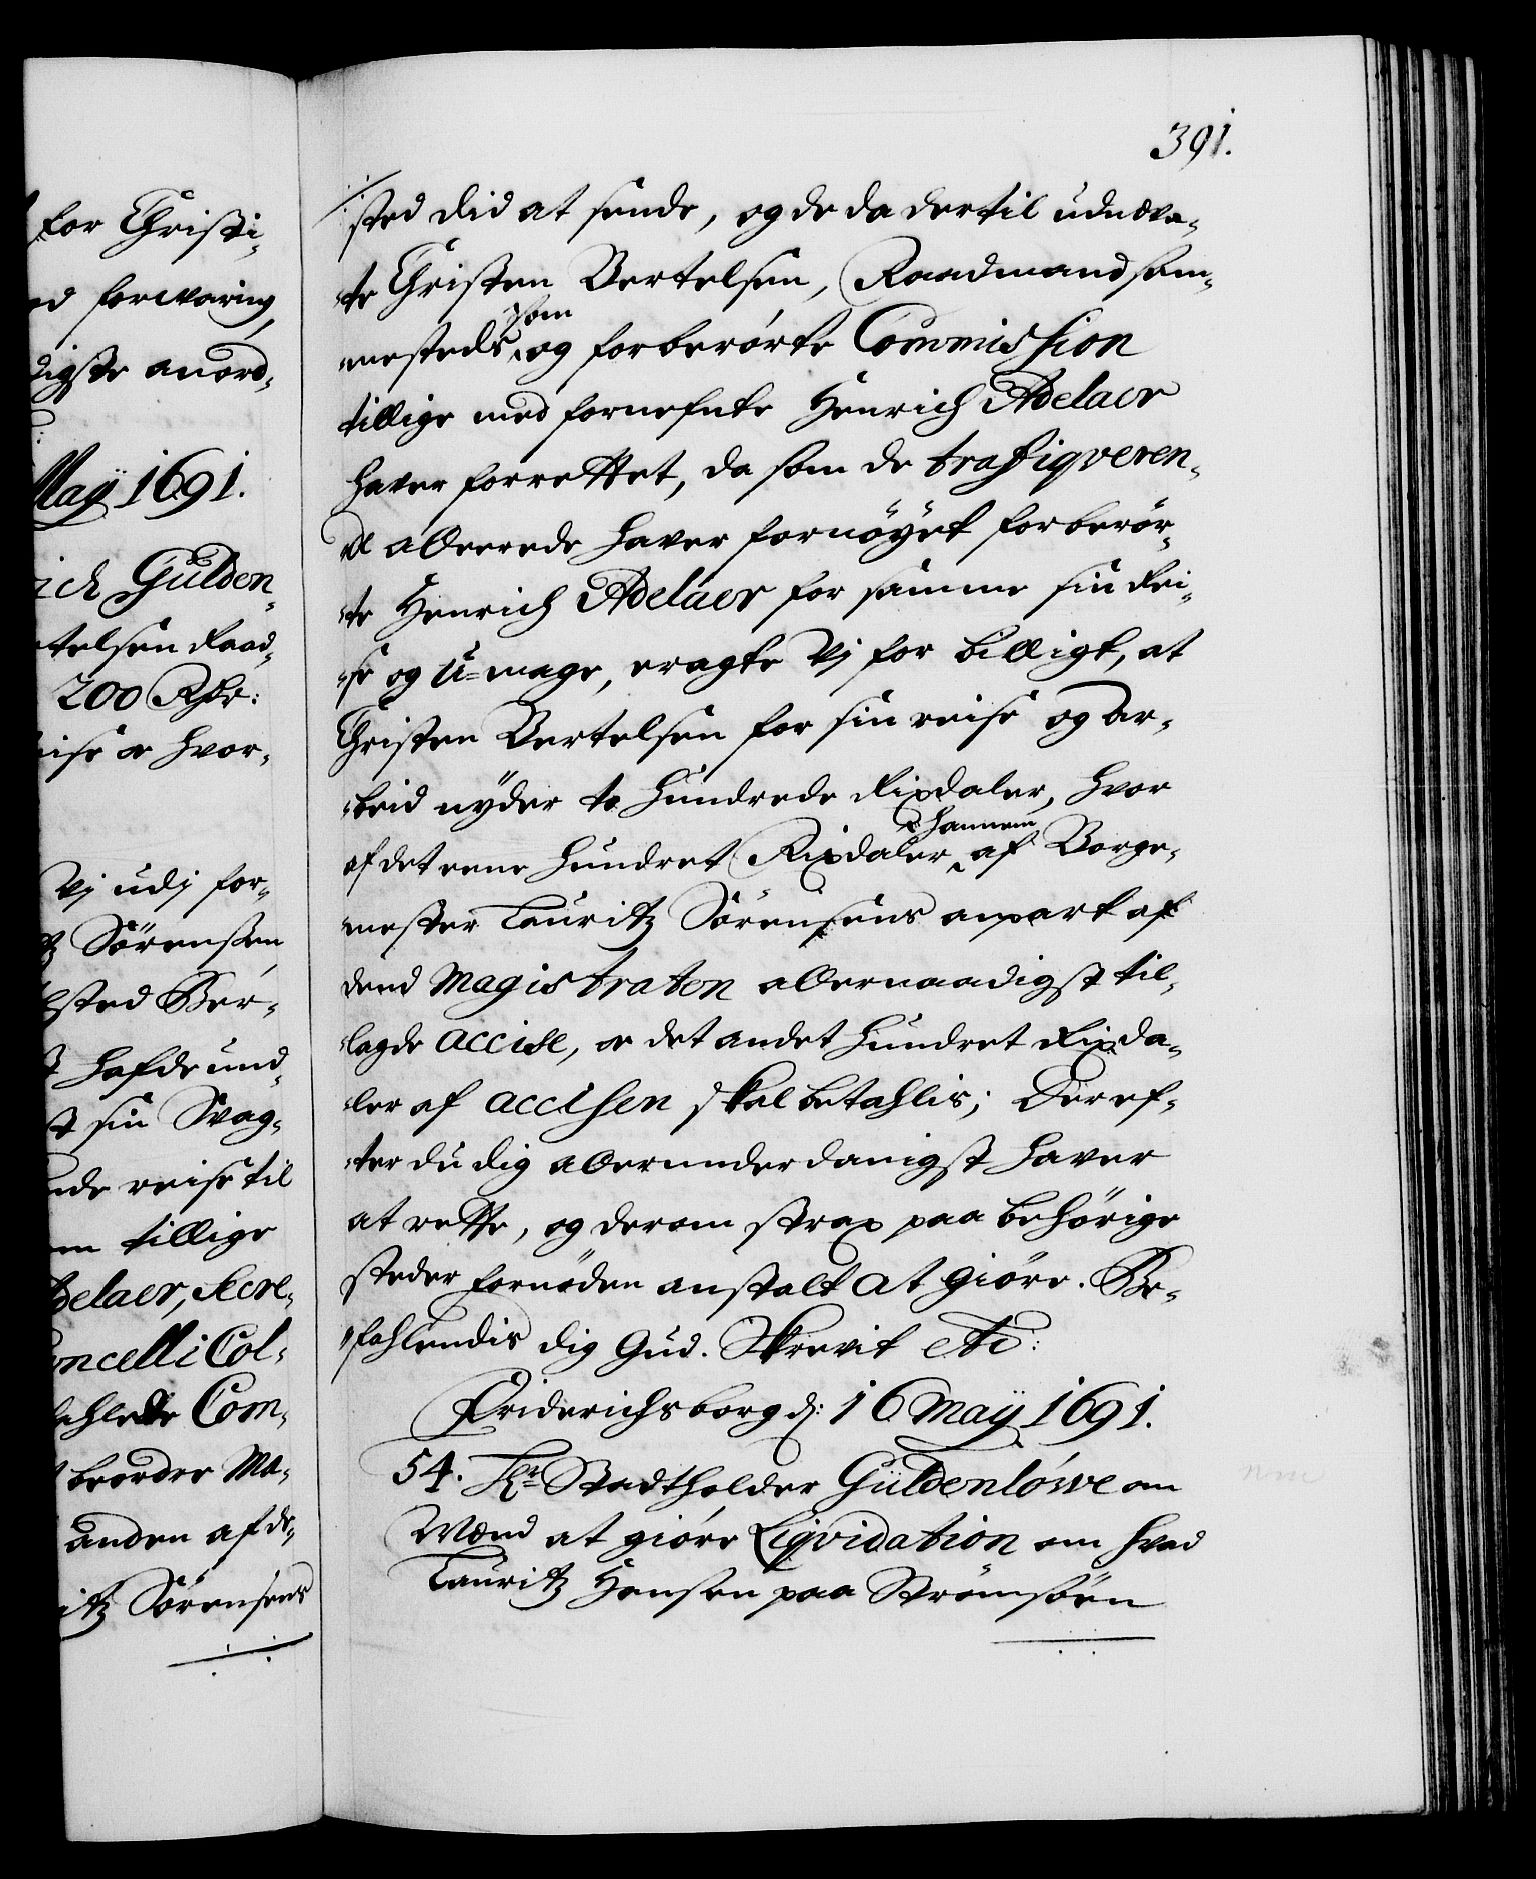 for Christi-
forvaring
digste anord-
May 1691.
Gulden-
telsen Raad-
200 Rdr:
hvor-
Vj udj for-
Sörensen
sted Ber-
hafde und-
sin Svag-
reise til
tillige
delaer, Secre-
ncelli Col-
Com-
beordre Ma-
anden af de-
itz Sörensens
391.
sted did at sende, og de da dertil udnefn-
te Christen Bertelsen, Raadmand sam-
mesteds, som og forberørte Commission
tillige med fornefnte Henrich Adelaer
hafver forrettet, da som de trafiqveren-
de allerede hafver fornøyet forberør-
te Henrich Adelaer for samme sin Rei-
se og U-mage, eragte Vj for billigt, at
Christen Bertelsen for sin reise og ar-
beid nyder to hundrede Rixdaler, hvor
af det eene hundret Rixdaler hannem af Borge-
mester Lauritz Sörensens anpart af
dend Magistraten allernaadigst til-
lagde accise, og det andet hundret Rixda-
ler af accisen skal betahlis; Deref-
ter du dig allerunderdanigst hafver
at rette, og derom strax paa behørige
steder fornøden anstalt at giöre. Be-
fahlendis dig Gud. Skrevit etc:
Friderichsborg d: 16 May 1691.
54. Hr Stadtholder Güldenlöwe om
Mænd at giöre Liqvidation om hvad
Lauritz Hansen paa Strømsöen